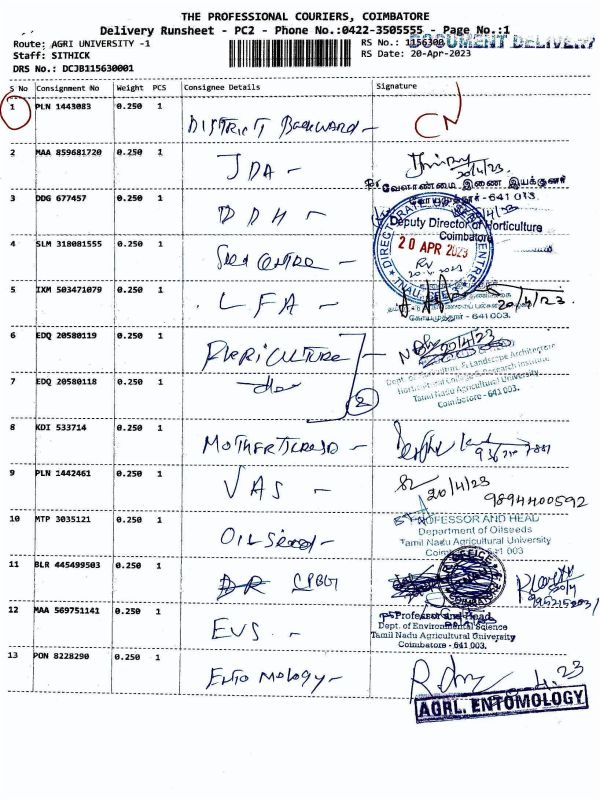 THE PROFESSIONAL COURIERS, COIMBATORE
Delivery Runsheet - PC2 - Phone No.:0422-3505555 - Page No.:1
Route: AGRI UNIVERSITY -1
RS No.: 1156300
DOCUMENT DELIVERY
Staff: SITHICK
RS Date: 20-Apr-2023
DRS No.: DCJB115630001
S No Consignment No Weight PCS Consignee Details Signature
1 PLN 1443083 0.250 1
DISTRICT Backward - CN
2 MAA 859681720 0.250 1
JDA - 20/4/23
வேளாண்மை இணை இயக்குனர்
கோயமுத்தூர் - 641 013.
3 DDG 677457 0.250 1
DDH - Deputy Director of Horticulture
Coimbatore
4 SLM 318081555 0.250 1
20 APR 2023
Seed Centre -
5 IXM 503471079 0.250 1
LFA - 20/4/23
கோயமுத்தூர் - 641 003.
6 EDQ 20580119 0.250 1
20/4/23
Dept. of Floriculture & Landscape Architecture
Horticultural College & Research Institute
7 EDQ 20580118 0.250 1
Tamil Nadu Agricultural University
Coimbatore - 641 003.
2
8 KDI 533714 0.250 1
9 PLN 1442461 0.250 1
VAS - 20/4/23
9894400592
10 MTP 3035121 0.250 1
PROFESSOR AND HEAD
Department of Oilseeds
Tamil Nadu Agricultural University
OIL Seed - Coimbatore 641 003
11 BLR 445499503 0.250 1
CPBG
12 MAA 569751141 0.250 1
Professor and Head
Dept. of Environmental Science
EVS - Tamil Nadu Agricultural University
Coimbatore - 641 003.
13 PON 8228290 0.250 1
Entomology -
AGRL. ENTOMOLOGY